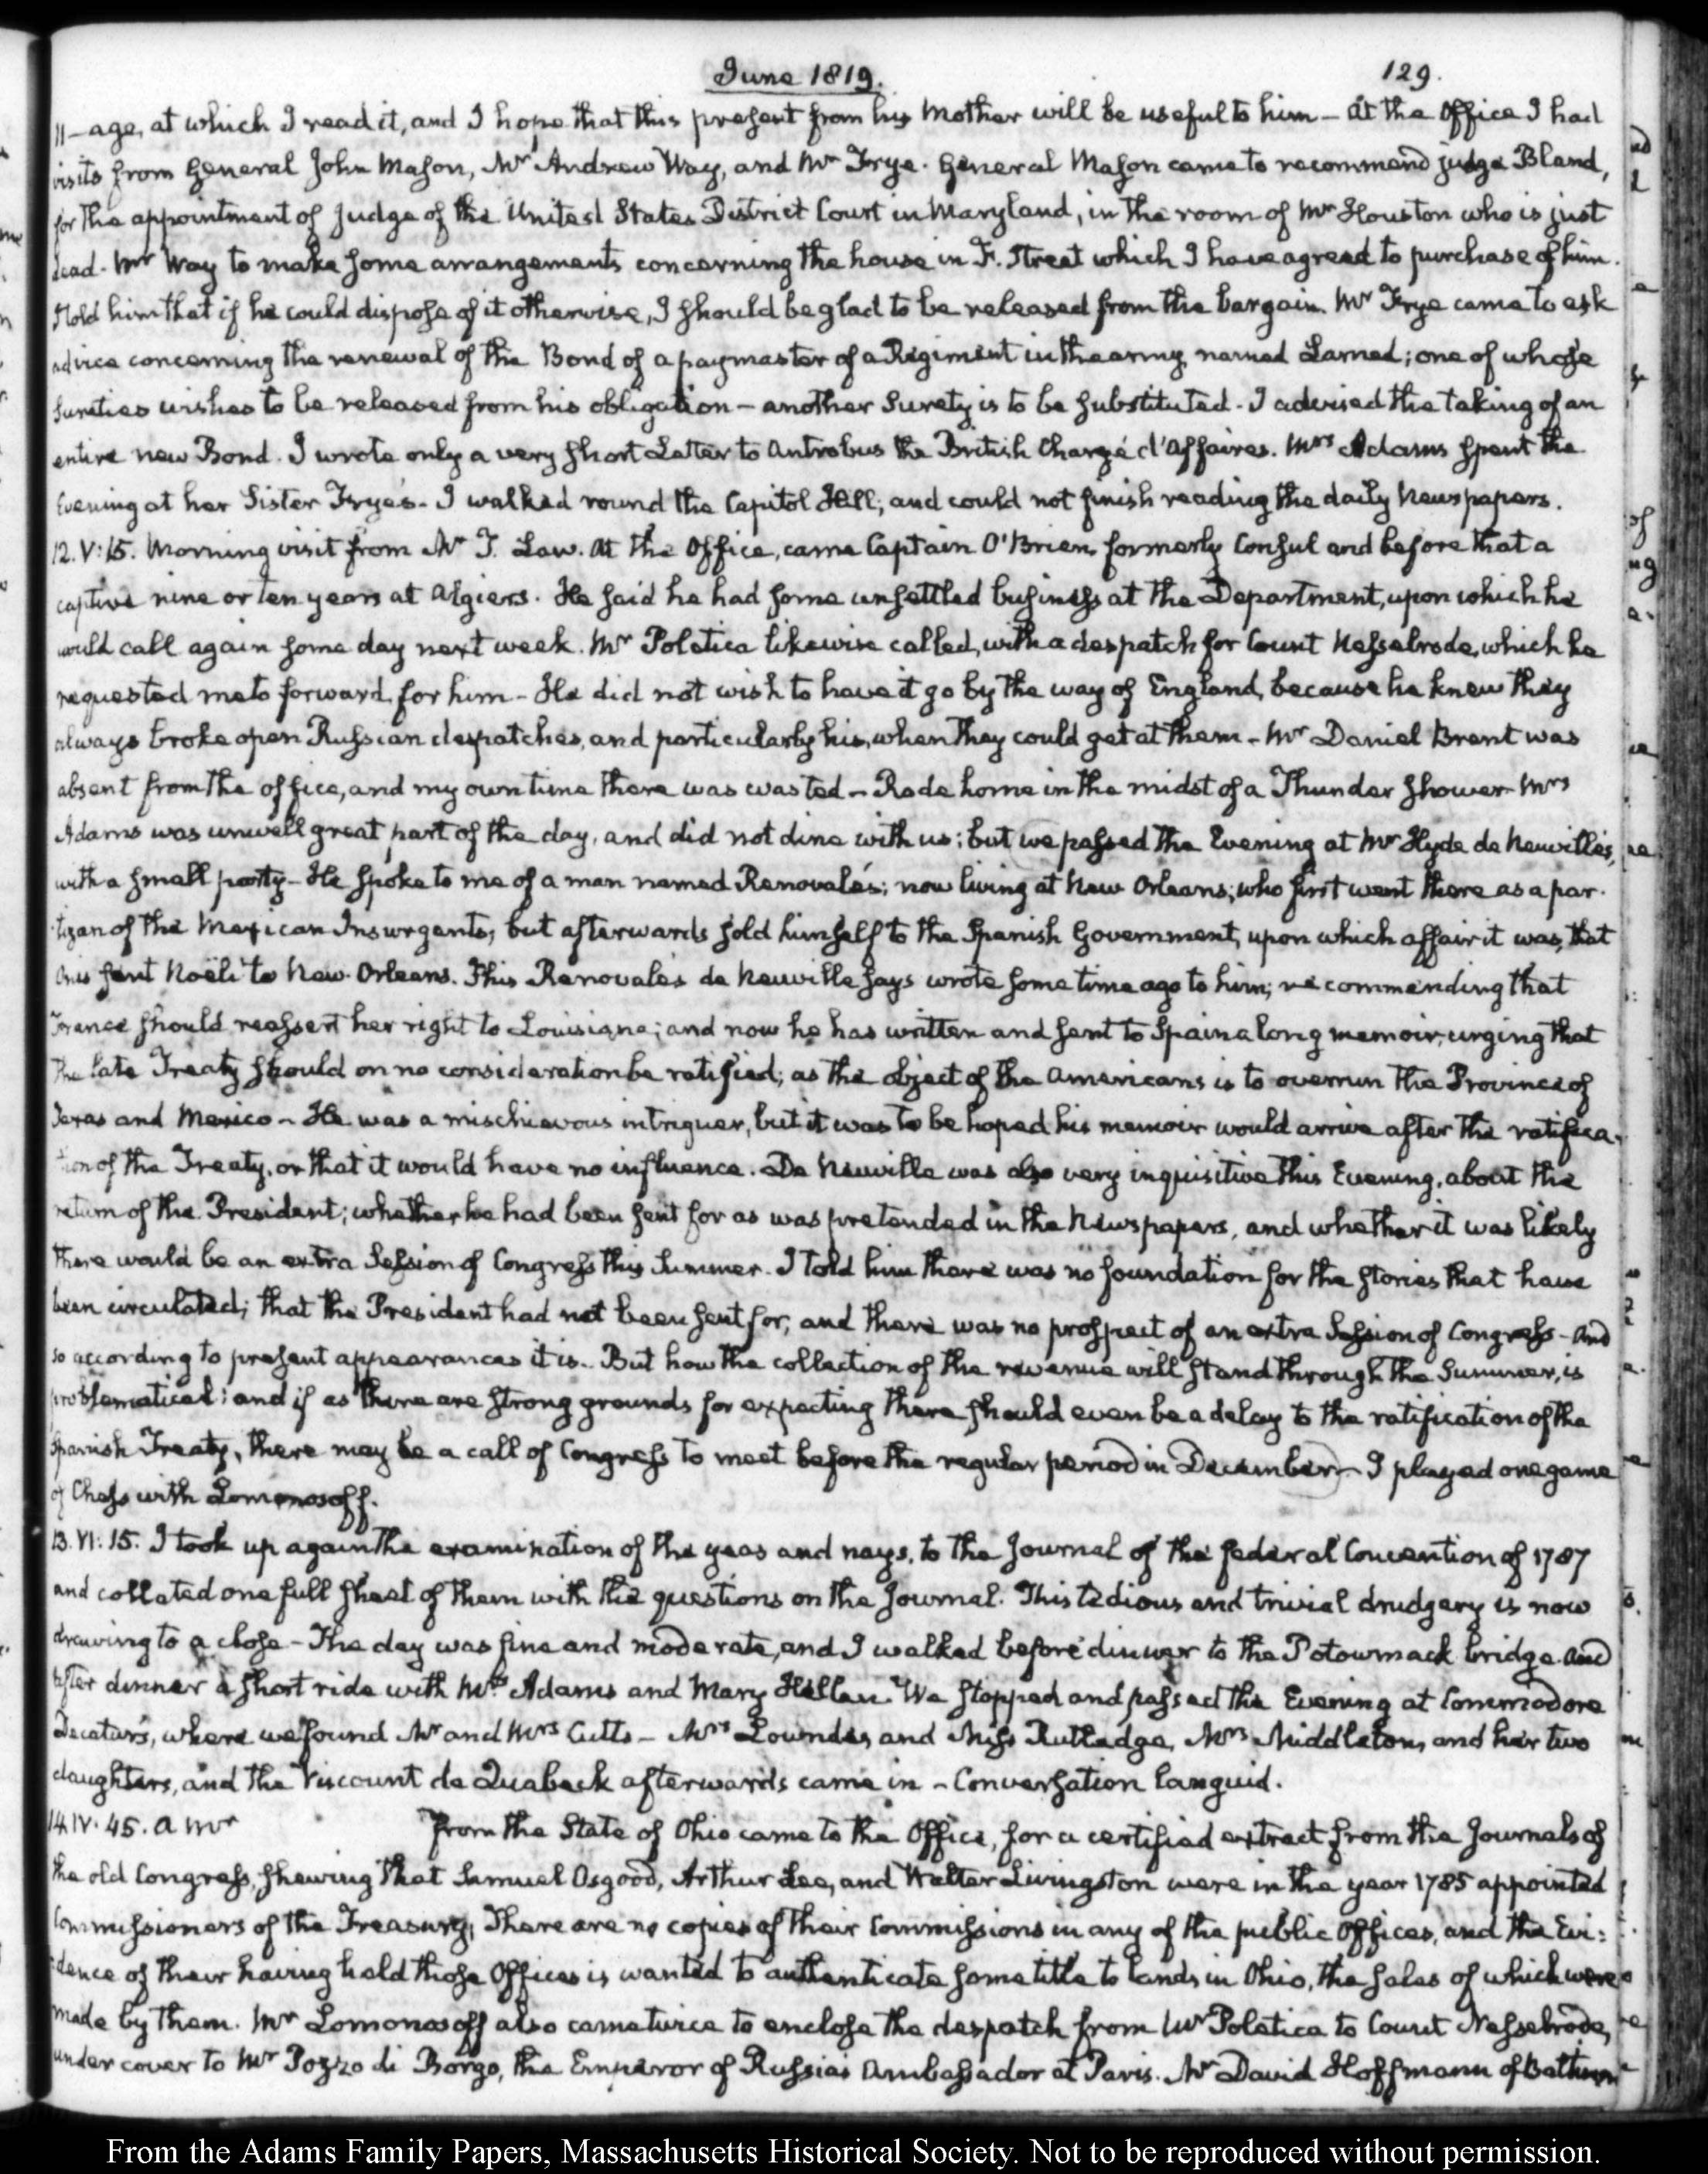 June 1819.
129.
11 — age, at which I read it, and I hope that this present from his Mother will be useful to him — At the Office I had
visits from General John Mason, Mr Andrew Way, and Mr Frye. General Mason came to recommend judge Bland,
for the appointment of Judge of the United States District Court in Maryland, in the room of Mr Houston who is just
dead. Mr Way to make some arrangements concerning the house in F. Street which I have agreed to purchase of him.
I told him that if he could dispose of it otherwise, I should be glad to be released from the bargain. Mr Frye came to ask
advice concerning the renewal of the Bond of a paymaster of a Regiment in the army, named Larned; one of whose
Sureties wishes to be released from his obligation — another Surety is to be substituted. I advised the taking of an
entire new Bond. I wrote only a very short Letter to Antrobus the British Chargé d'Affaires. Mrs Adams spent the
Evening at her Sister Frye's. I walked round the Capitol Hill; and could not finish reading the daily Newspapers.
12. V:15. Morning visit from Mr T. Law. At the Office, came Captain O'Brien, formerly Consul and before that a
captive nine or ten years at Algiers. He said he had some unsettled business at the Department, upon which he
would call again some day next week. Mr Poletica likewise called, with a despatch for Count Nesselrode, which he
requested me to forward for him — He did not wish to have it go by the way of England, because he knew they
always broke open Russian despatches, and particularly his, when they could get at them — Mr Daniel Brent was
absent from the office, and my own time there was wasted — Rode home in the midst of a Thunder shower — Mrs
Adams was unwell great part of the day, and did not dine with us; but we passed the Evening at Mr Hyde de Neuville's,
with a small party — He spoke to me of a man named Renovalés; now living at New Orleans; who first went there as a par-
tizan of the Mexican Insurgents, but afterwards sold himself to the Spanish Government, upon which affair it was, that
Onis sent Noëli to New-Orleans. This Renovalés de Neuville says wrote some time ago to him; recommending that
France should reassert her right to Louisiana; and now he has written and sent to Spain a long memoir, urging that
the late Treaty should on no consideration be ratified; as the object of the Americans is to overrun the Province of
Texas and Mexico — He was a mischievous intriguer, but it was to be hoped his memoir would arrive after the ratifica-
tion of the Treaty, or that it would have no influence. De Neuville was also very inquisitive this Evening, about the
return of the President; whether he had been sent for as was pretended in the Newspapers, and whether it was likely
there would be an extra Session of Congress this Summer. I told him there was no foundation for the stories that have
been circulated; that the President had not been sent for; and there was no prospect of an extra Session of Congress — And
so according to present appearances it is. But how the collection of the revenue will stand through the Summer, is
problematical; and if as there are strong grounds for expecting there should even be a delay to the ratification of the
Spanish Treaty, there may be a call of Congress to meet before the regular period in December — I played one game
of Chess with Lomonosoff.
13. VI:15. I took up again the examination of the yeas and nays, to the Journal of the federal Convention of 1787
and collated one full sheet of them with the questions on the Journal. This tedious and trivial drudgery is now
drawing to a close — The day was fine and moderate, and I walked before dinner to the Potowmack bridge. And
after dinner a short ride with Mrs Adams and Mary Hellen. We stopped and passed the Evening at Commodore
Decatur's, where we found Mr and Mrs Cutts — Mrs Lowndes, and Miss Rutledge, Mrs Middleton, and her two
daughters, and the Viscount de Quabeck afterwards came in — Conversation languid.
14. IV.45. A Mr from the State of Ohio came to the Office, for a certified extract from the Journals of
the old Congress, shewing that Samuel Osgood, Arthur Lee, and Walter Livingston were in the year 1785 appointed
Commissioners of the Treasury, There are no copies of their Commissions in any of the public Offices, and the Evi-
dence of their having held those Offices is wanted to authenticate some title to lands in Ohio, the sales of which were
made by them. Mr Lomonosoff also came twice to enclose the despatch from Mr Poletica to Count Nesselrode,
under cover to Mr Pozzo di Borgo, the Emperor of Russia's Ambassador at Paris. Mr David Hoffmann of
From the Adams Family Papers, Massachusetts Historical Society. Not to be reproduced without permission.